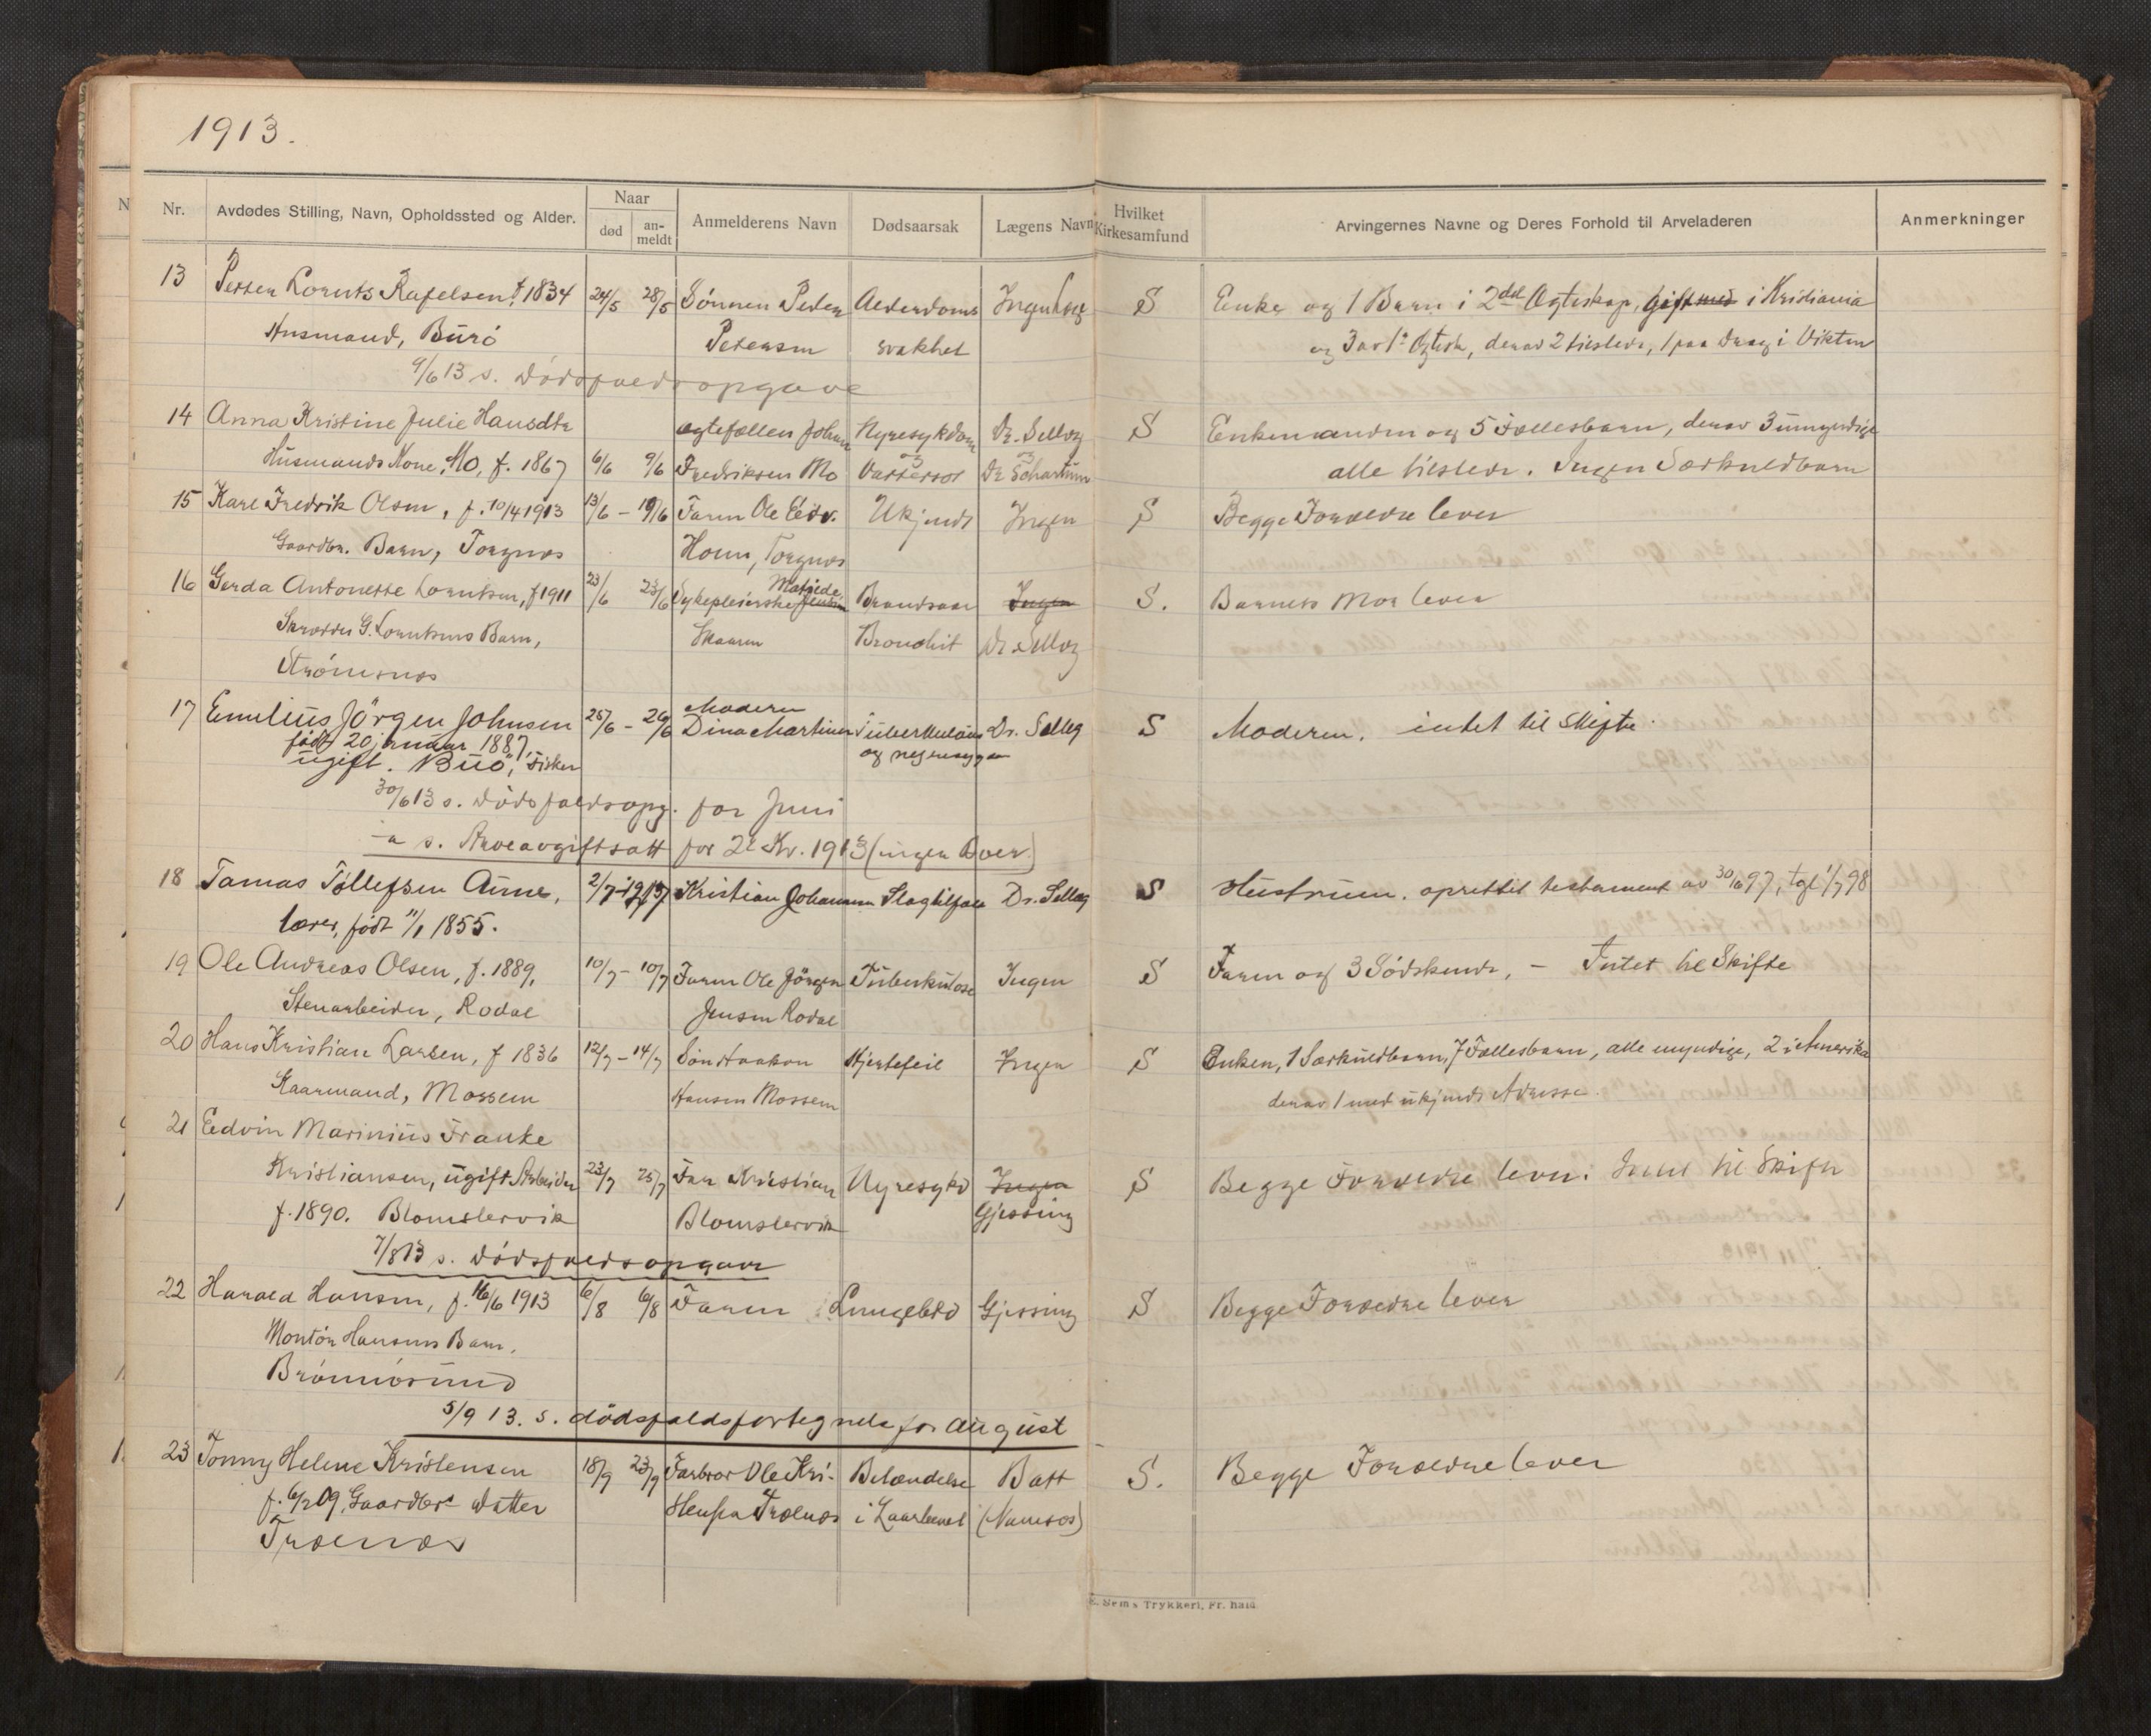 1913.
Nr. Avdødes Stilling, Navn, Opholdssted og Alder. Naar død an-meldt Anmelderens Navn Dødsaarsak Lægens Navn Hvilket Kirkesamfund Arvingernes Navne og Deres Forhold til Arveladeren Anmerkninger
13 Petter Lornts Rafelsen f. 1834 24/5 28/5 Sønnen Peder Alderdoms Ingen Læge S Enke og 1 Barn i 2det Ægteskap, i Kristiania
Husmand, Burø Petersen svakhet og 3 av 1ste Ægtesk, derav 2 tilstede, 1 paa Drag i Vikten
9/6 13 s. Dødsfaldsopgave
14 Anna Kristine Julie Hansdtr ægtefællen Johan Nyresykdom Dr. Selleg S Enkemanden og 5 Fællesbarn, derav 3 umyndige
Husmands Kone, Mo, f. 1867 6/6 9/6 Fredriksen Mo og Vattersot og Dr Scharium alle tilstede. Ingen Særkuldbarn
15 Karl Fredrik Olsen, f. 10/4 1913 13/6 - 19/6 Faren Ole Edv. Ukjendt Ingen S Begge Forældre lever
Gaardbr. Barn, Torgnes Horn, Torgnes
16 Gerda Antonette Lorntsen, f 1911 23/6 23/6 Sykepleierske Matjede Jensen Brandsaar Ingen S. Barnets Mor lever
Skrædder G. Lorntsens Barn, Skaaren Bronchit Dr. Selleg
Strømsnes
17 Emilius Jörgen Johnsen 25/6 - 26/6 Moderen Dina Martinsen Tuberkuløse Dr. Selleg S Moderen. intet til Skifte.
født 20 januar 1887, og
ugift. Buö, Fisker
30/6 13 s. Dødsfaldsopg. for Juni
- " s. Arveavgiftsatt for 2t Kv. 1913 (ingen Boer)
18 Tomas Tøllefsen Aune, 2/7 1913 Kristian Johansen Slagtilfæle Dr. Selleg S Hustruen. oprettet testament av 30/6 97, tgl 1/7 98
lærer, født 11/1 1855.
19 Ole Andreas Olsen, f. 1889, 10/7 - 10/7 Faren Ole Jörgen Tuberkulose Ingen S Faren og 3 Sødskende, - Intet til Skifte
Stenarbeider, Rodal Jensen Rodal
20 Hans Kristian Larsen, f 1836 12/7 - 14/7 Søn Haakon Hjertefeil Ingen S Enken, 1 Særkuldbarn, 7 Fællesbarn, alle myndige, 2 i Amerika
Kaarmand, Mossem Hansen Mossem derav 1 med ukjendt Adresse.
21 Edvin Marinius Franke
Kristiansen, ugift Arbeider 23/7 25/7 Far Kristian Nyresykd Ingen S Begge Forældre lever. Intet til Skifte
f. 1890. Blomstervik Blomstervik Gjessing
7/8 13 s. Dødsfaldsopgave
22 Harald Hansen, f. 16/6 1913 6/8 6/8 Faren Lungebetd Gjessing S Begge Forældre lever
Montör Hansens Barn,
Brønnøsund
5/9 13. s. dødsfaldsfortegnelse for August
23 Tonny Helene Kristensen 18/9 23/9 Farbror Ole Kri- Betændelse Batt S. Begge Forældre lever
f. 6/2 09, Gaardbrs Datter stensen Trælnes i Laarbenet (Namsos)
Trælnes
E. Sems Trykkeri, Fr. hald